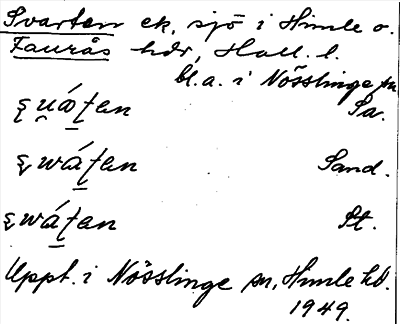 Svarten ek, sjö i Himle o.
Faurås hdr, Hall. l.
bl.a. i Nösslinge sn
Sa.
wátan Sand.
wátan St.
Uppt. i Nösslinge sn, Himle hd.
1949.